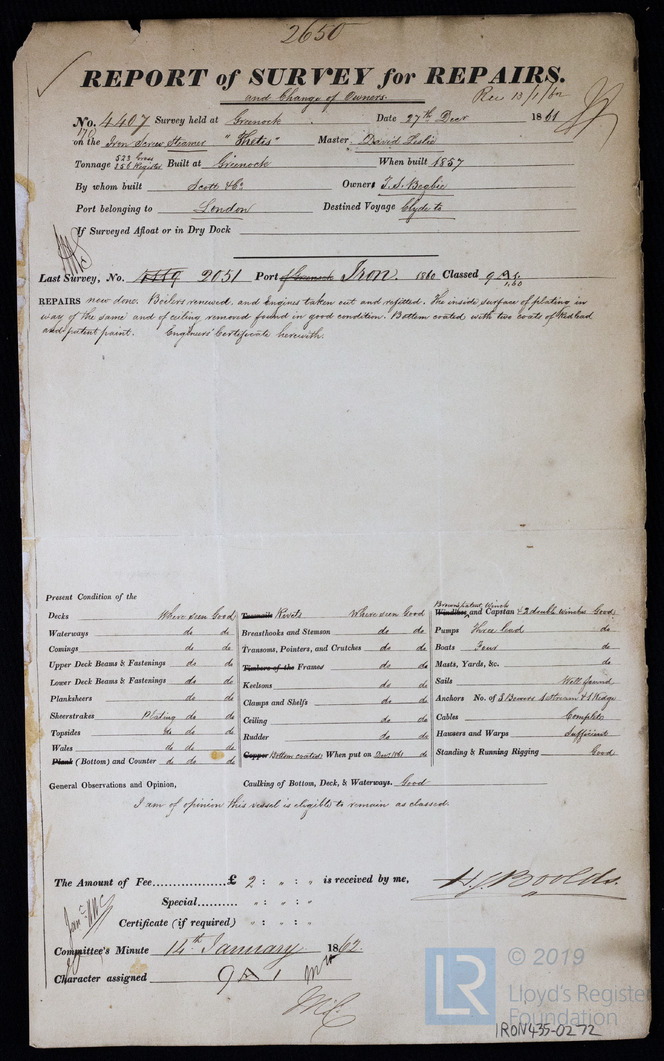 2650
REPORT of SURVEY for REPAIRS.
and Change of Owners. Rec 13/1/62
No. 4407 Survey held at Greenock Date 27th Decr 1861
on the Iron Screw Steamer "Thetis" Master David Leslie
Tonnage 523 Gross 256 Register Built at Greenock When built 1857
By whom built Scott & Co. Owners T. S. Begbie
Port belonging to London Destined Voyage Clyde to
If Surveyed Afloat or in Dry Dock
Last Survey, No. 2051 Port of Greenock Iron. 1860 Classed 9 A 1. 1,60
REPAIRS now done. Boilers renewed, and Engines taken out and refitted. The inside surface of plating in
way of the same and of ceiling removed found in good condition. Bottom coated with two coats of Red lead
and patent paint. Engineers' Certificate herewith.
Present Condition of the
Decks Where seen Good
Waterways do do
Comings do do
Upper Deck Beams & Fastenings do do
Lower Deck Beams & Fastenings do do
Planksheers do do
Sheerstrakes Plating do do
Topsides do do do
Wales do do do
Plank (Bottom) and Counter do do do
Treenails Rivets Where seen Good
Breasthooks and Stemson do do
Transoms, Pointers, and Crutches do do
Timbers of the Frames do do
Keelsons do do
Clamps and Shelfs do do
Ceiling do do
Rudder do do
Copper Bottom coated When put on Decr 1861 do
Browns patent Winch
Windlass and Capstan & 2 double winches Good
Pumps Three lead do
Boats Four do
Masts, Yards, &c. do
Sails Well found
Anchors No. of 3 Bowers 1 Stream & 1 Kedge
Cables Complete
Hausers and Warps Sufficient
Standing & Running Rigging Good
General Observations and Opinion, Caulking of Bottom, Deck, & Waterways. Good
I am of opinion this vessel is eligible to remain as classed.
The Amount of Fee £ 2 : " : " is received by me,
H. J. Boolds.
Special " : " : "
Certificate (if required) " : " : "
Committee's Minute 14th January 1862
Character assigned 9 A 1
© 2019
LR Lloyd's Register
Foundation
IRON435-0272